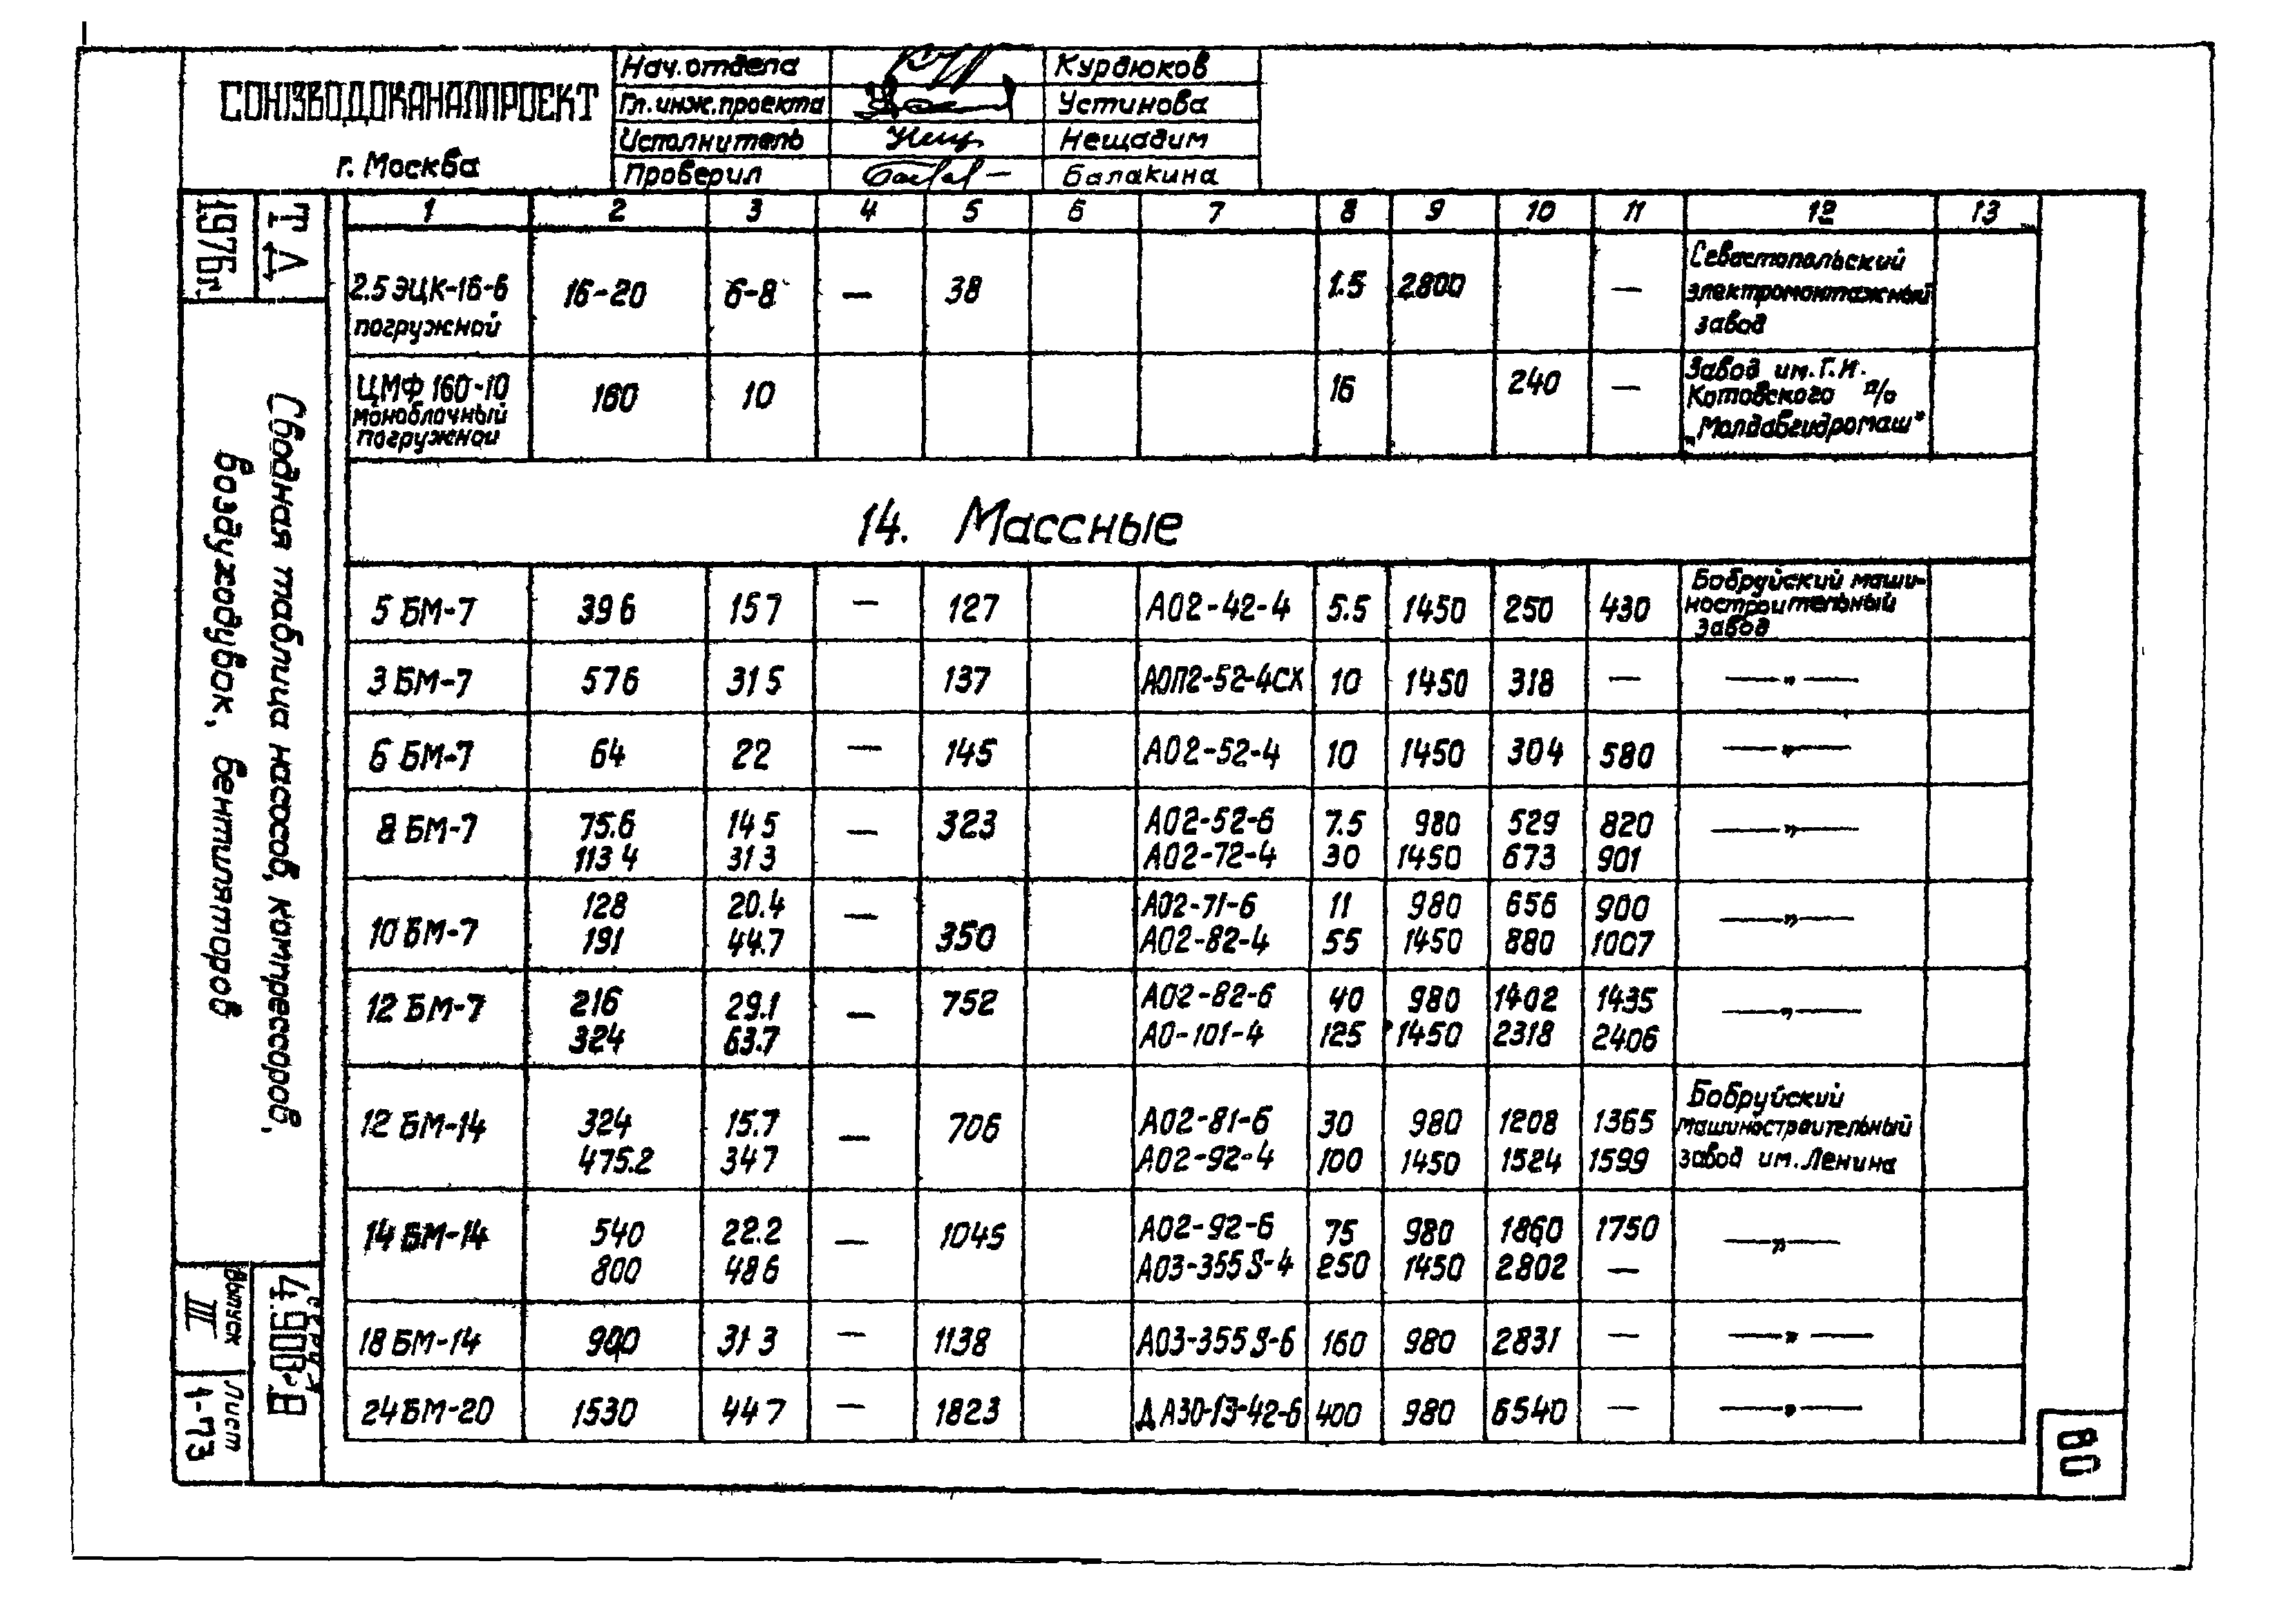 СОЮЗВОДОКАНАЛПРОЕКТ
г. Москва
Нач. отдела Курдюков
Гл. инж. проекта Устинова
Исполнитель Нещадим
Проверил Балакина
1976г.
ТД
Сводная таблица насосов, компрессоров,
воздуходувок, вентиляторов
серия
4.900-8
Выпуск
III
Лист
1-73
1 2 3 4 5 6 7 8 9 10 11 12 13
2.5 ЭЦК-16-6 погружной 16-20 6-8 — 38 1.5 2800 — Севастопольский электромонтажный завод
ЦМФ 160-10 моноблочный погружной 160 10 16 240 — Завод им. Г.И. Котовского п/о „Молдавгидромаш"
14. Массные
5 БМ-7 39 6 15 7 — 127 АО2-42-4 5.5 1450 250 430 Бобруйский машиностроительный завод
3 БМ-7 57 6 31 5 137 АОП2-52-4СХ 10 1450 318 — —"—
6 БМ-7 64 22 — 145 АО2-52-4 10 1450 304 580 —"—
8 БМ-7 75.6 14 5 — 323 АО2-52-6 7.5 980 529 820 —"—
113 4 31 3 АО2-72-4 30 1450 673 901
10 БМ-7 128 20.4 — 350 АО2-71-6 11 980 656 900 —"—
191 44.7 АО2-82-4 55 1450 880 1007
12 БМ-7 216 29.1 — 752 АО2-82-6 40 980 1402 1435 —"—
324 63.7 АО-101-4 125 1450 2318 2406
12 БМ-14 324 15.7 — 706 АО2-81-6 30 980 1208 1365 Бобруйский машиностроительный завод им. Ленина
475.2 34 7 АО2-92-4 100 1450 1524 1599
14 БМ-14 540 22.2 — 1045 АО2-92-6 75 980 1860 1750 —"—
800 48 6 АО3-355 S-4 250 1450 2802 —
18 БМ-14 900 31 3 — 1138 АО3-355 S-6 160 980 2831 — —"—
24 БМ-20 1530 44 7 — 1823 ДАЗО-13-42-6 400 980 6540 — —"—
80